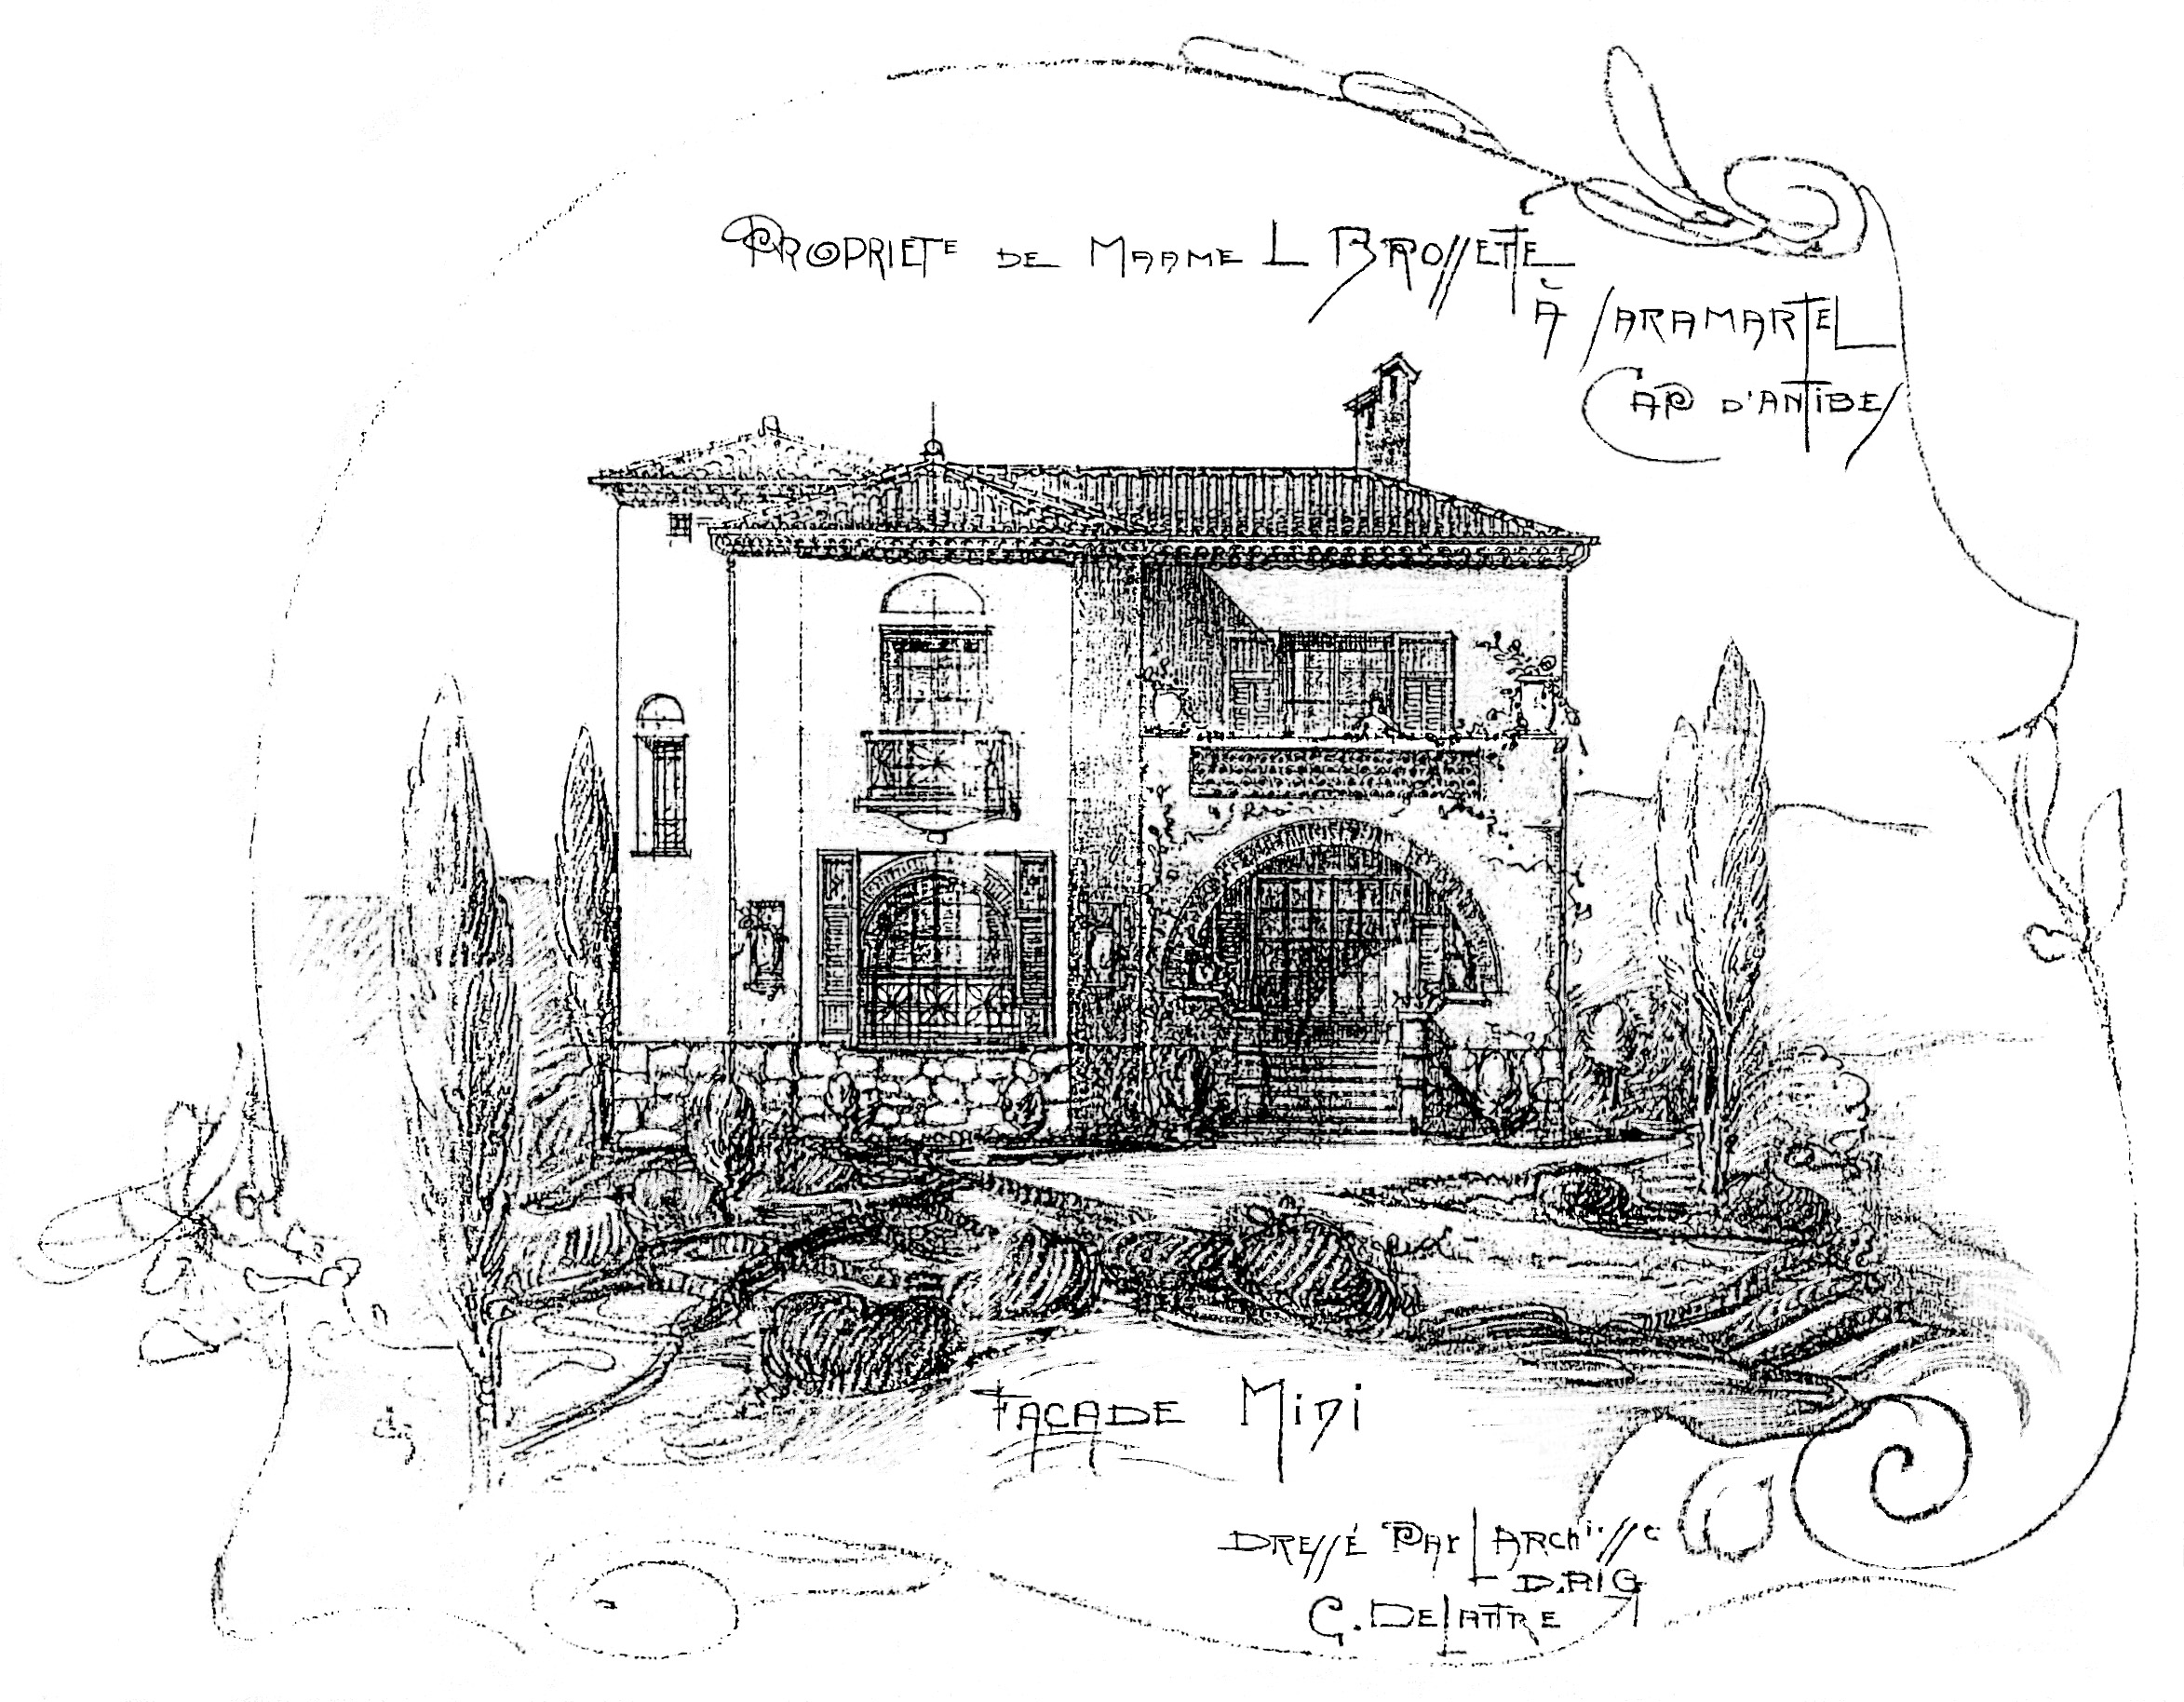 PROPRIETE DE MAAME L BROSSETTE
À SARAMARTEL
CAP D'ANTIBES
FAÇADE MIDI
DRESSÉ PAR L'ARCHI.SS
G. DELATTRE